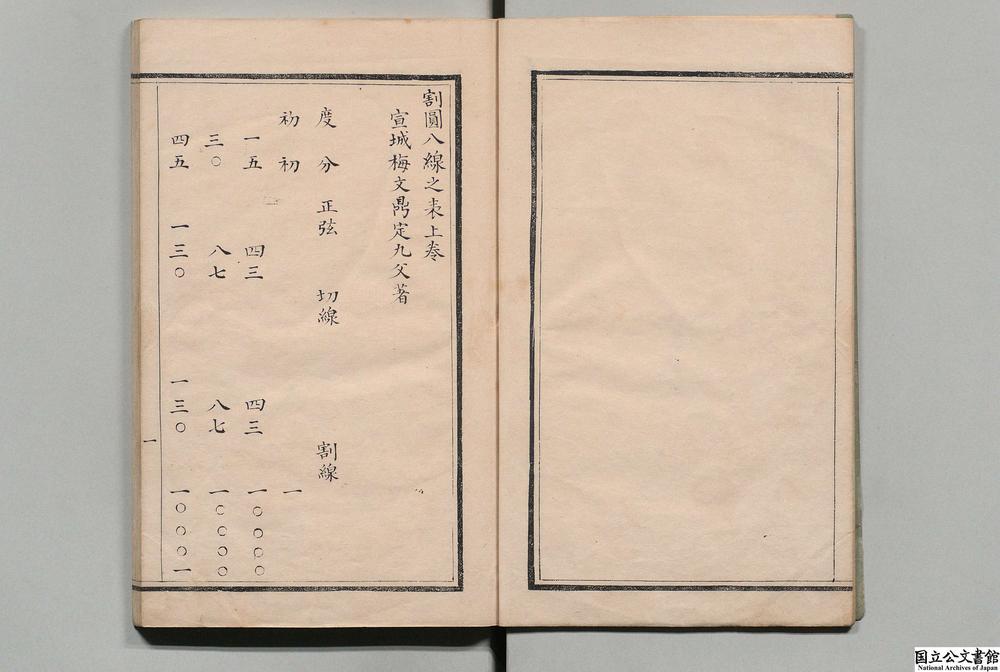 割圓八線之表上卷
宣城梅文鼎定九父著
度 分 正弦 切線 割線
初 初 一
一五 四三 四三 一〇〇〇〇
三〇 八七 八七 一〇〇〇〇
四五 一三〇 一三〇 一〇〇〇一
一
国立公文書館
National Archives of Japan